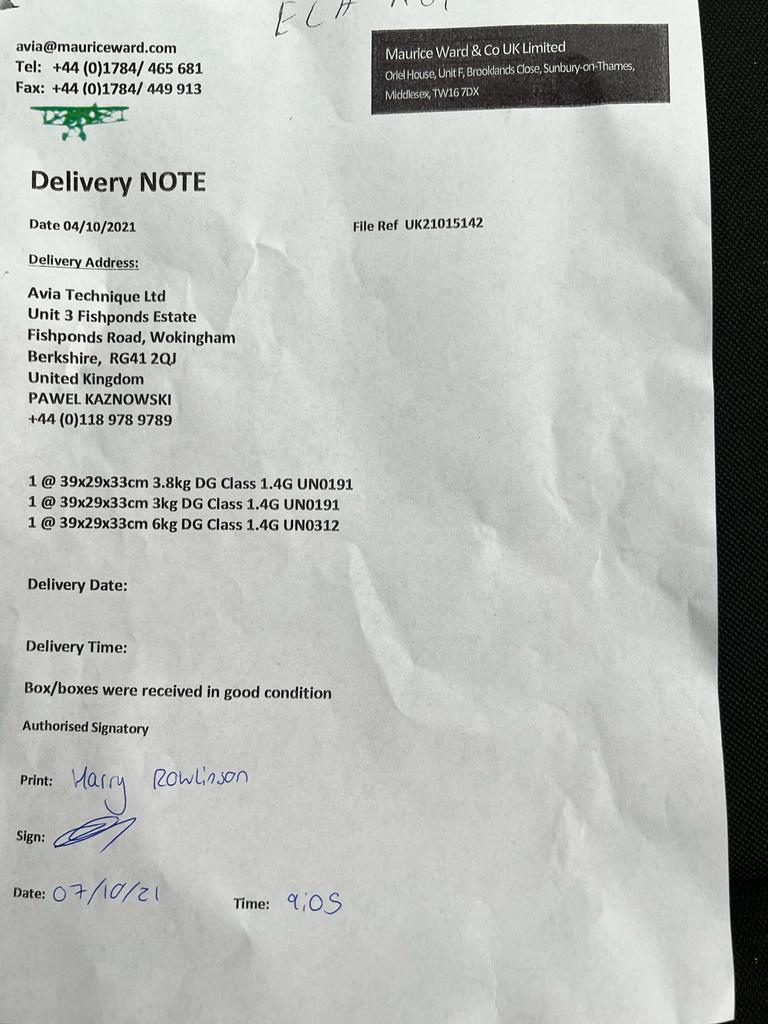 avia@mauriceward.com
Tel: +44 (0)1784/ 465 681
Fax: +44 (0)1784/ 449 913
Maurice Ward & Co UK Limited
Oriel House, Unit F, Brooklands Close, Sunbury-on-Thames,
Middlesex, TW16 7DX
Delivery NOTE
Date 04/10/2021
File Ref UK21015142
Delivery Address:
Avia Technique Ltd
Unit 3 Fishponds Estate
Fishponds Road, Wokingham
Berkshire, RG41 2QJ
United Kingdom
PAWEL KAZNOWSKI
+44 (0)118 978 9789
1 @ 39x29x33cm 3.8kg DG Class 1.4G UN0191
1 @ 39x29x33cm 3kg DG Class 1.4G UN0191
1 @ 39x29x33cm 6kg DG Class 1.4G UN0312
Delivery Date:
Delivery Time:
Box/boxes were received in good condition
Authorised Signatory
Print: Harry Rowlinson
Sign:
Date: 07/10/21 Time: 9:05